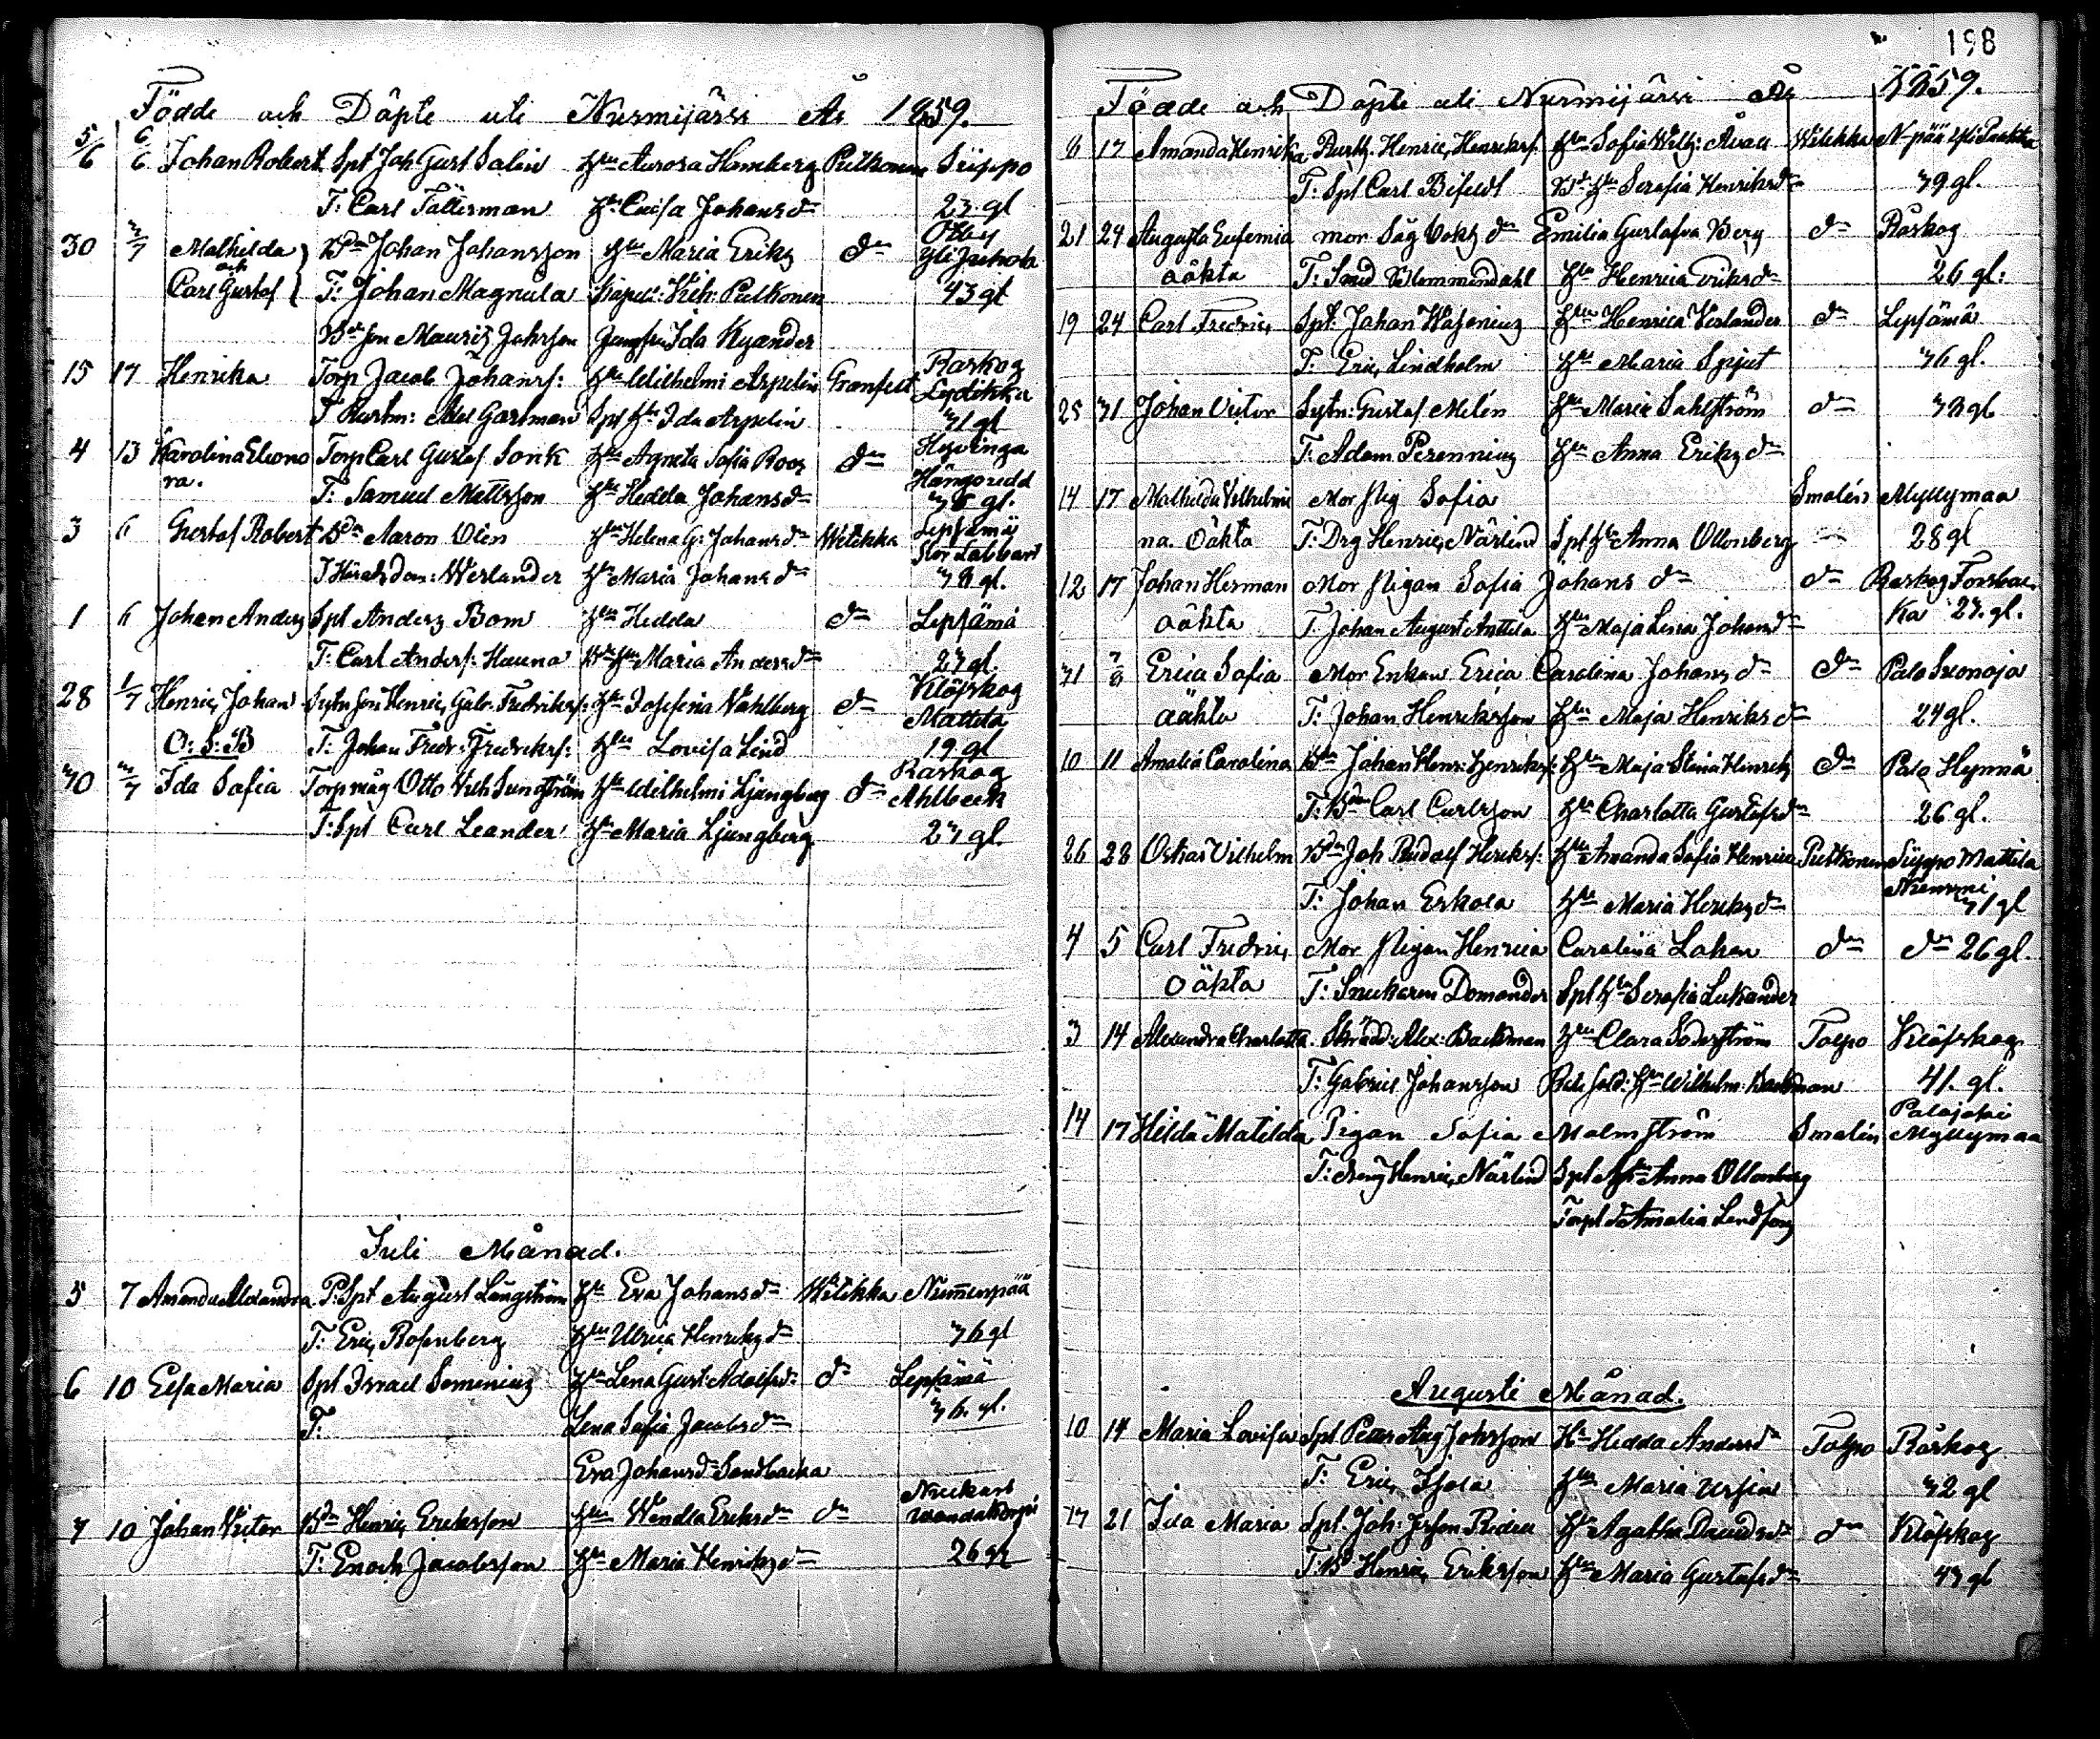 Födde och Döpte uti Nurmijärvi År 1859.
5/6 6/6 Johan Robert Spt Joh Gust Salin Hu Aurora Hemberg Pulkonen Seippo
T: Carl Tallerman Hu Caisa Johansdr 23 gl
30 3/7 Mathilda Bdn Johan Johansson Hu Maria Eriks do Yli Juhola
och Carl Gustaf T: Johan Magnula Kapell: Vilh: Pulkonen 43 gl
Bdeson Mauritz Johsson Jungfru Ida Kyander
15 17 Henrika Torp Jacob Johanss: Hu Wilhelmi Arpelin Granfelt Raskog
T Rustm: Axel Gartman Spt Hu Ida Arpelin 31 gl
4 13 Karolina Eleono Torp Carl Gustaf Sonk Hu Agneta Sofia Roos do Hyvinga
ra. T: Samuel Mattsson Hu Hedda Johansdr Hångoredd
36 gl.
3 6 Gustaf Robert Bdn Aaron Olen Hu Helena G: Johansdr Witikka Lepsämä
T Häradsdom: Werlander Hu Maria Johansdr 38 gl.
1 6 Johan Anders Spt Anders Bom Hu Hedda do Lepsämä
T: Carl Anders: Hauna Bde Hu Maria Andersdr 23 gl.
28 1/7 Henric Johan Sytn son Henric Gabr. Fredrikss: Hu Josefina Vahlberg do Klöfskog
Mattila
O: S: B T: Johan Fredr: Fredrikss: Hu Lovisa Lind 19 gl
30 3/7 Ida Sofia Torp måg Otto Vilh Sundström Hu Wilhelmi Ljungberg do Raskog
Ahlbeck
T: Spt Carl Leander Hu Maria Ljungberg 23 gl.
Juli Månad.
5 7 Amanda Alexandra P: Spt August Långström Hu Eva Johansdr Witikka Nummenpää
T: Eric Rosenberg Hu Ulrica Henriksdr 36 gl
6 10 Elsa Maria Spt Israel Sommenius Hu Lena Gust: Adolfsd: do Lepsämä
T: Lena Sofia Jacobsdr 36. gl.
Eva Johansd Sandbacka
7 10 Johan Victor Bdn Henric Eriksson Hu Wendla Eriksdr do Nuckari
T: Enoch Jacobsson Hu Maria Henriksdr 26 gl
198
Födde och Döpte uti Nurmijärvi År 1859.
6 17 Amanda Henrika Rusth. Henric Henrikss: Hu Sofia Wilh: Witikka N-pää
T: Spt Carl Bifeldt Bde Hu Serafia Henriksdr 39 gl.
21 24 Augusta Eufemia mor Emilia Gustafva Berg do Råskog
oäkta T: Smid Blommendahl Hu Henrica Eriksdr 26 gl:
19 24 Carl Fredric Spt: Johan Wasenius Hu Henrica Verlander do Lepsämä
T: Eric Lindholm Hu Maria Spjut 36 gl.
25 31 Johan Victor Sytn: Gustaf Melén Hu Maria Sahlström do 38 gl
T: Adam Perennius Hu Anna Eriksdr
14 17 Mathilda Vilhelmi Mor pig Sofia Smalén Myllymaa
na. Oäkta T: Drg Henric Närlind Spt Hu Anna Ollonberg 28 gl
12 17 Johan Herman Mor pigan Sofia Johansdr do Raskog Forsbac
oäkta T. Johan August Anttila Hu Maja Lena Johansdr ka 23. gl.
31 7/8 Erica Sofia Mor Enkan Erica Carolina Johansdr do Palo Suonoja
oäkta T: Johan Henriksson Hu Maja Henriksdr 24 gl.
10 11 Amalia Carolina Bdn Johan Henr: Henrikss: Hu Maja Stina Henriks do Palo Hynnä
T: Bdn Carl Carlsson Hu Charlotta Gustafsdr 26 gl.
26 28 Oskar Vilhelm Bdn Joh Rudolf Henrikss: Hu Amanda Sofia Henrics Pulkonen Seippo Mattila
T: Johan Erkola Hu Maria Henriksdr 31 gl
4 5 Carl Fredric Mor Pigan Henrica Carolina Lahan do do 26 gl.
Oäkta T: Snickaren Domander Spt Hu Serafia Lukander
3 14 Alexandra Charlotta Skrädd: Alex: Backman Hu Clara Söderström Talpo Klöfskog
T: Gabriel Johansson Hu Wilhelm: Backman 41. gl.
14 17 Hilda Matilda Pigan Sofia Malmström Smalén Palojoki
Myllymaa
T: Dreng Henric Närlind Spt Hu Anna Ollonberg
Torpd Amalia Lindfors
Augusti Månad.
10 14 Maria Lovisa Spt Petter Aug Johsson Hu Hedda Andersdr Talpo Råskog
T: Eric Isola Hu Maria Ursin 32 gl
17 21 Ida Maria Spt: Joh: Hu Agatha Davidsdr do Klöfskog
T: Bd Henric Eriksson Hu Maria Gustafsdr 43 gl